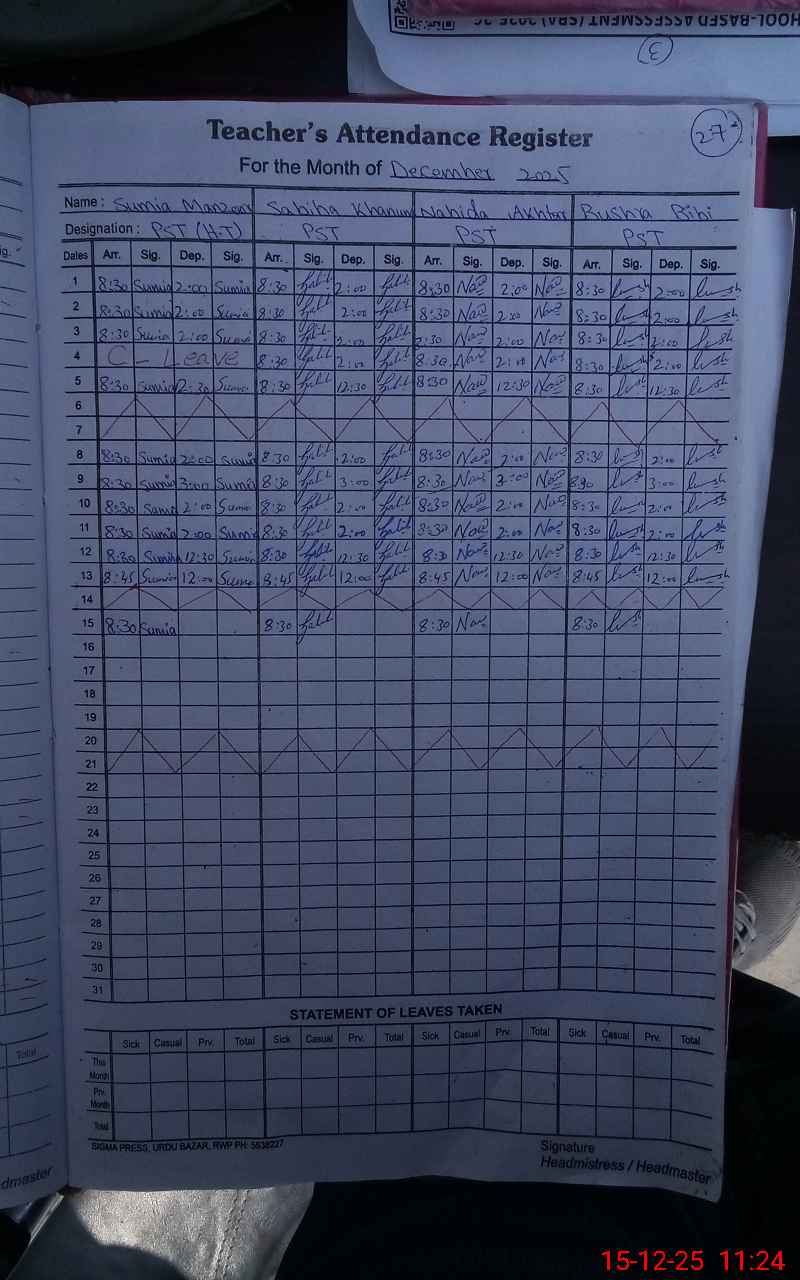 HOOL-BASED ASSESSMENT (SBA) 2025-26
3
Teacher's Attendance Register
27
For the Month of December 2025
Name : Sumia Manzoor Sabiha Khanum Nahida Akhtar Bushra Bibi
Designation : PST (H.T) PST PST PST
Dates Arr. Sig. Dep. Sig. Arr. Sig. Dep. Sig. Arr. Sig. Dep. Sig. Arr. Sig. Dep. Sig.
1 8:30 Sumia 2:00 Sumia 8:30 2:00 8:30 Naz 2:00 Naz 8:30 2:00
2 8:30 Sumia 2:00 Sumia 8:30 2:00 8:30 Naz 2:00 Naz 8:30 2:00
3 8:30 Sumia 2:00 Sumia 8:30 2:00 Naz 2:00 Naz 8:30 2:00
4 C - Leave 8:30 2:00 8:30 Naz 2:00 Naz 8:30 2:00
5 8:30 Sumia 12:30 Sumia 8:30 12:30 8:30 Naz 12:30 Naz 8:30 12:30
6
7
8 8:30 Sumia 2:00 Sumia 8:30 2:00 8:30 Naz 2:00 Naz 8:30 2:00
9 8:30 Sumia 3:00 Sumia 8:30 3:00 8:30 Naz 3:00 Naz 8:30 3:00
10 8:30 Sumia 2:00 Sumia 8:30 2:00 8:30 Naz 2:00 Naz 8:30 2:00
11 8:30 Sumia 2:00 Sumia 8:30 2:00 8:30 Naz 2:00 Naz 8:30 2:00
12 8:30 Sumia 12:30 Sumia 8:30 12:30 8:30 Naz 12:30 Naz 8:30 12:30
13 8:45 Sumia 12:00 Sumia 8:45 12:00 8:45 Naz 12:00 Naz 8:45 12:00
14
15 8:30 Sumia 8:30 8:30 Naz 8:30
16
17
18
19
20
21
22
23
24
25
26
27
28
29
30
31
STATEMENT OF LEAVES TAKEN
Sick Casual Prv. Total Sick Casual Prv. Total Sick Casual Prv. Total Sick Casual Prv. Total
This Month
Prv. Month
Total
SIGMA PRESS, URDU BAZAR, RWP PH: 5538227
Signature
Headmistress / Headmaster
Total
dmaster
15-12-25 11:24